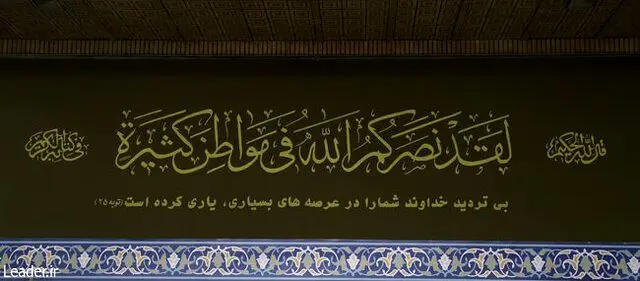 قال الله الحکیم
لَقَد نَصَرَکُمُ اللهُ فی مَواطِنَ کَثیرَةٍ
فی کتابه الکریم
بی تردید خداوند شمارا در عرصه های بسیاری، یاری کرده است (توبه ۲۵)
Leader.ir